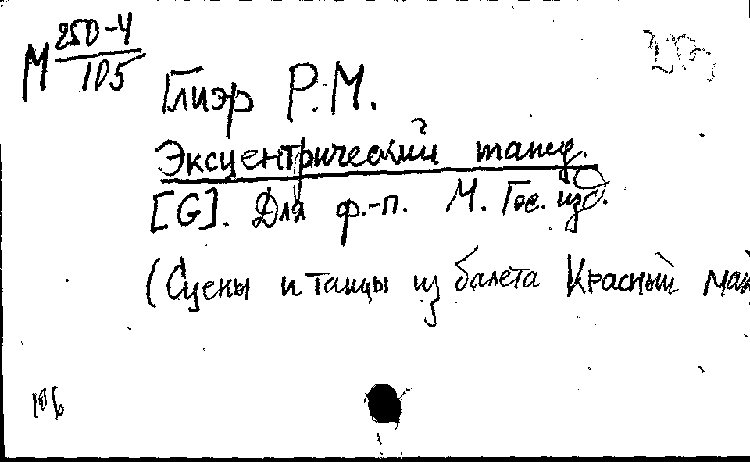 М 250-4
105
Глиэр Р.М.
Эксцентрический танец.
[G]. Для ф.-п. М. Гос. изд.
(Сцены и танцы из балета Красный мак